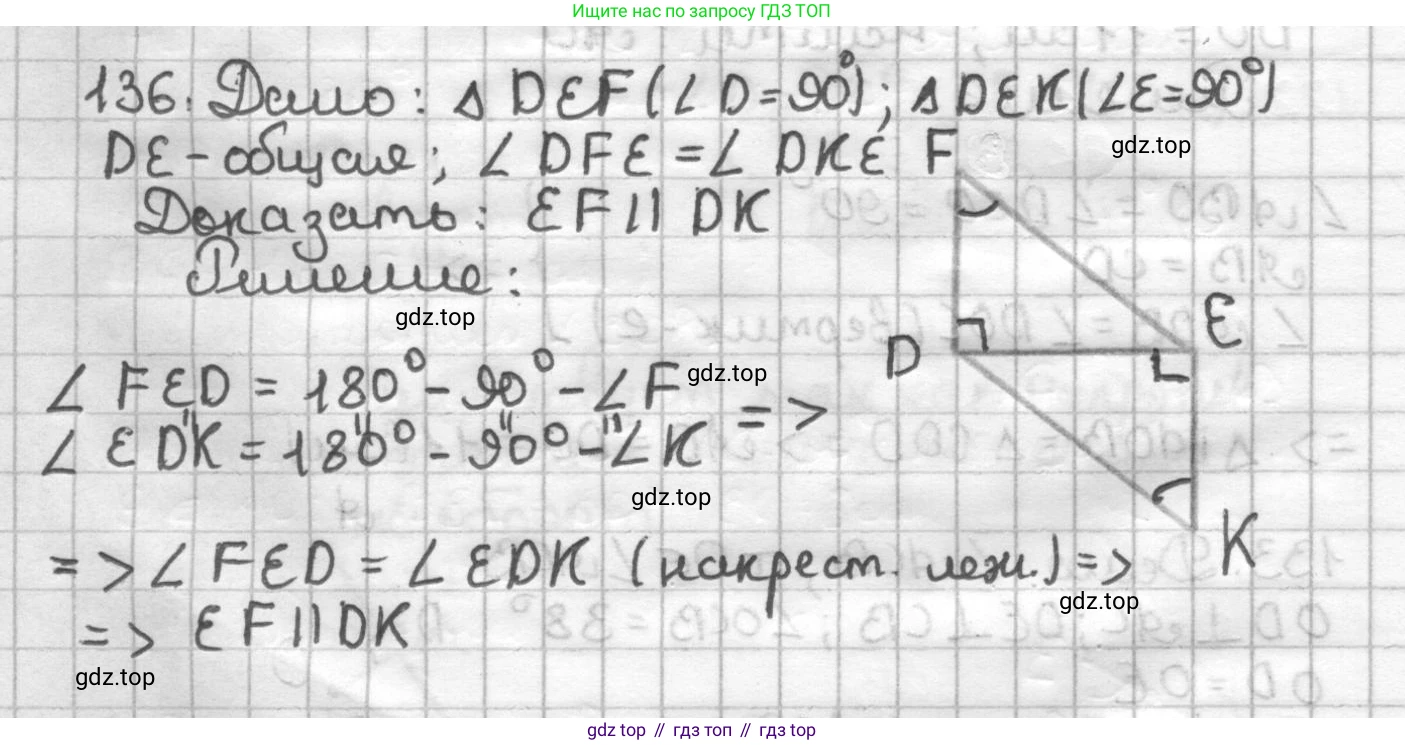 Ищите нас по запросу ГДЗ ТОП
136. Дано: Δ DEF (∠ D = 90°); Δ DEK (∠E = 90°)
DE - общая; ∠ DFE = ∠ DKE
gdz.top
F
Доказать: EF || DK
Решение:
gdz.top
E
D
∠ FED = 180° - 90° - ∠F
gdz.top
=>
∠ EDK = 180° - 90° - ∠K
gdz.top
K
=> ∠ FED = ∠ EDK (накрест. леж.) =>
gdz.top
=> EF || DK
gdz.top
gdz top // гдз топ // гдз top